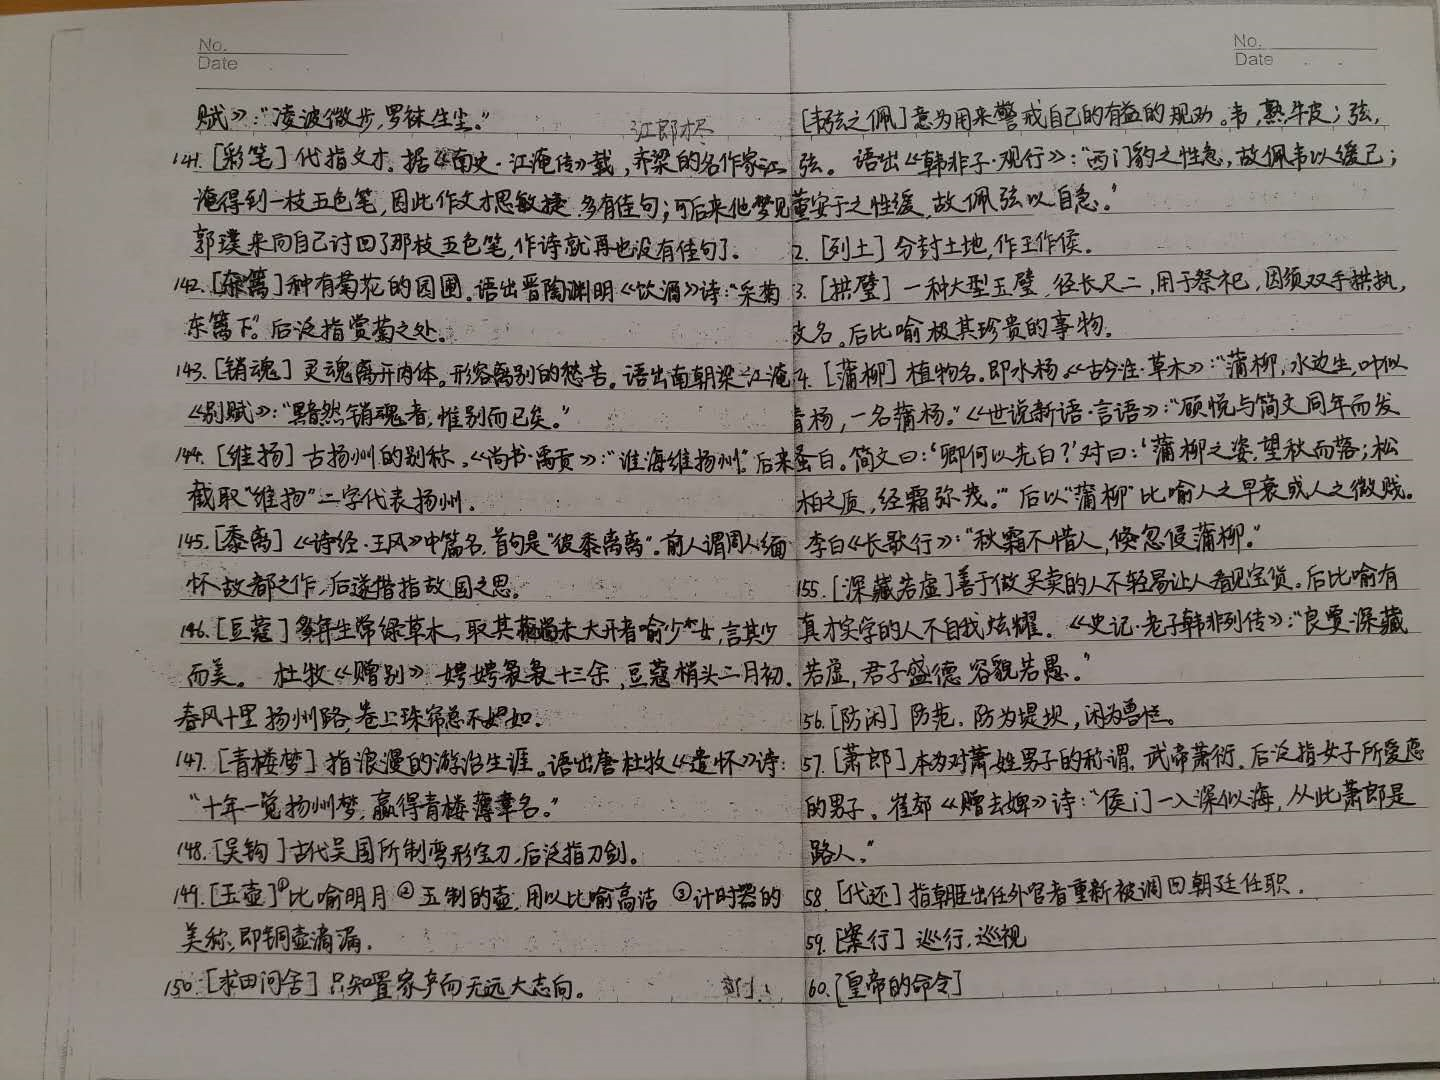 No.
Date
赋》:"凌波微步,罗袜生尘。"
江郎才尽
141. [彩笔] 代指文才。据《南史·江淹传》载,齐梁的名作家江
淹得到一枝五色笔,因此作文才思敏捷,多有佳句;可后来他梦见
郭璞来向自己讨回了那枝五色笔,作诗就再也没有佳句了.
142. [东篱] 种有菊花的园圃。语出晋陶渊明《饮酒》诗:"采菊
东篱下"。后泛指赏菊之处。
143. [销魂] 灵魂离开肉体。形容离别的愁苦。语出南朝梁江淹
《别赋》:"黯然销魂者,惟别而已矣。"
144. [维扬] 古扬州的别称。《尚书·禹贡》:"淮海维扬州"。后来
截取"维扬"二字代表扬州.
145. [黍离]《诗经·王风》中篇名,首句是"彼黍离离".前人谓周人缅
怀故都之作,后遂借指故国之思。
146. [豆蔻] 多年生常绿草木,取其尚未大开者喻少女,言其少
而美。 杜牧《赠别》 娉娉袅袅十三余,豆蔻梢头二月初.
春风十里扬州路,卷上珠帘总不如.
147. [青楼梦] 指浪漫的游冶生涯。语出唐杜牧《遣怀》诗:
"十年一觉扬州梦,赢得青楼薄幸名。"
148. [吴钩] 古代吴国所制弯形宝刀,后泛指刀剑。
149. [玉壶] ①比喻明月 ②玉制的壶,用以比喻高洁 ③计时器的
美称,即铜壶滴漏.
150. [求田问舍] 只知置家产而无远大志向。
No.
Date
[韦弦之佩] 意为用来警戒自己的有益的规劝。韦,熟牛皮;弦,
弦。 语出《韩非子·观行》:"西门豹之性急,故佩韦以缓己;
董安于之性缓,故佩弦以自急。"
2. [列土] 分封土地,作王作侯.
3. [拱璧] 一种大型玉璧,径长尺二,用于祭祀,因须双手拱执,
故名。后比喻极其珍贵的事物.
4. [蒲柳] 植物名。即水杨。《古今注·草木》:"蒲柳,水边生,叶似
青杨,一名蒲杨。"《世说新语·言语》:"顾悦与简文同年而发
蚤白。简文曰:'卿何以先白?'对曰:'蒲柳之姿,望秋而落;松
柏之质,经霜弥茂。'"后以"蒲柳"比喻人之早衰或人之微贱。
李白《长歌行》:"秋霜不惜人,倏忽侵蒲柳。"
155. [深藏若虚] 善于做买卖的人不轻易让人看见宝货。后比喻有
真才实学的人不自我炫耀. 《史记·老子韩非列传》:"良贾深藏
若虚,君子盛德,容貌若愚。"
56. [防闲] 防范.防为堤坝,闲为兽栏。
57. [萧郎] 本为对萧姓男子的称谓。武帝萧衍.后泛指女子所爱恋
的男子。崔郊《赠去婢》诗:"侯门一入深似海,从此萧郎是
路人。"
58. [代还] 指朝臣出任外官者重新被调回朝廷任职.
59. [案行] 巡行,巡视
60. [皇帝的命令]